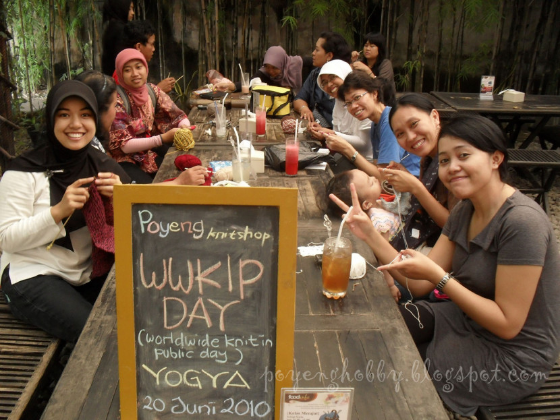 Poyeng knitshop
WWKIP
DAY
(worldwide knit in
public day)
YOGYA
20 Juni 2010
poyenghobby.blogspot.com